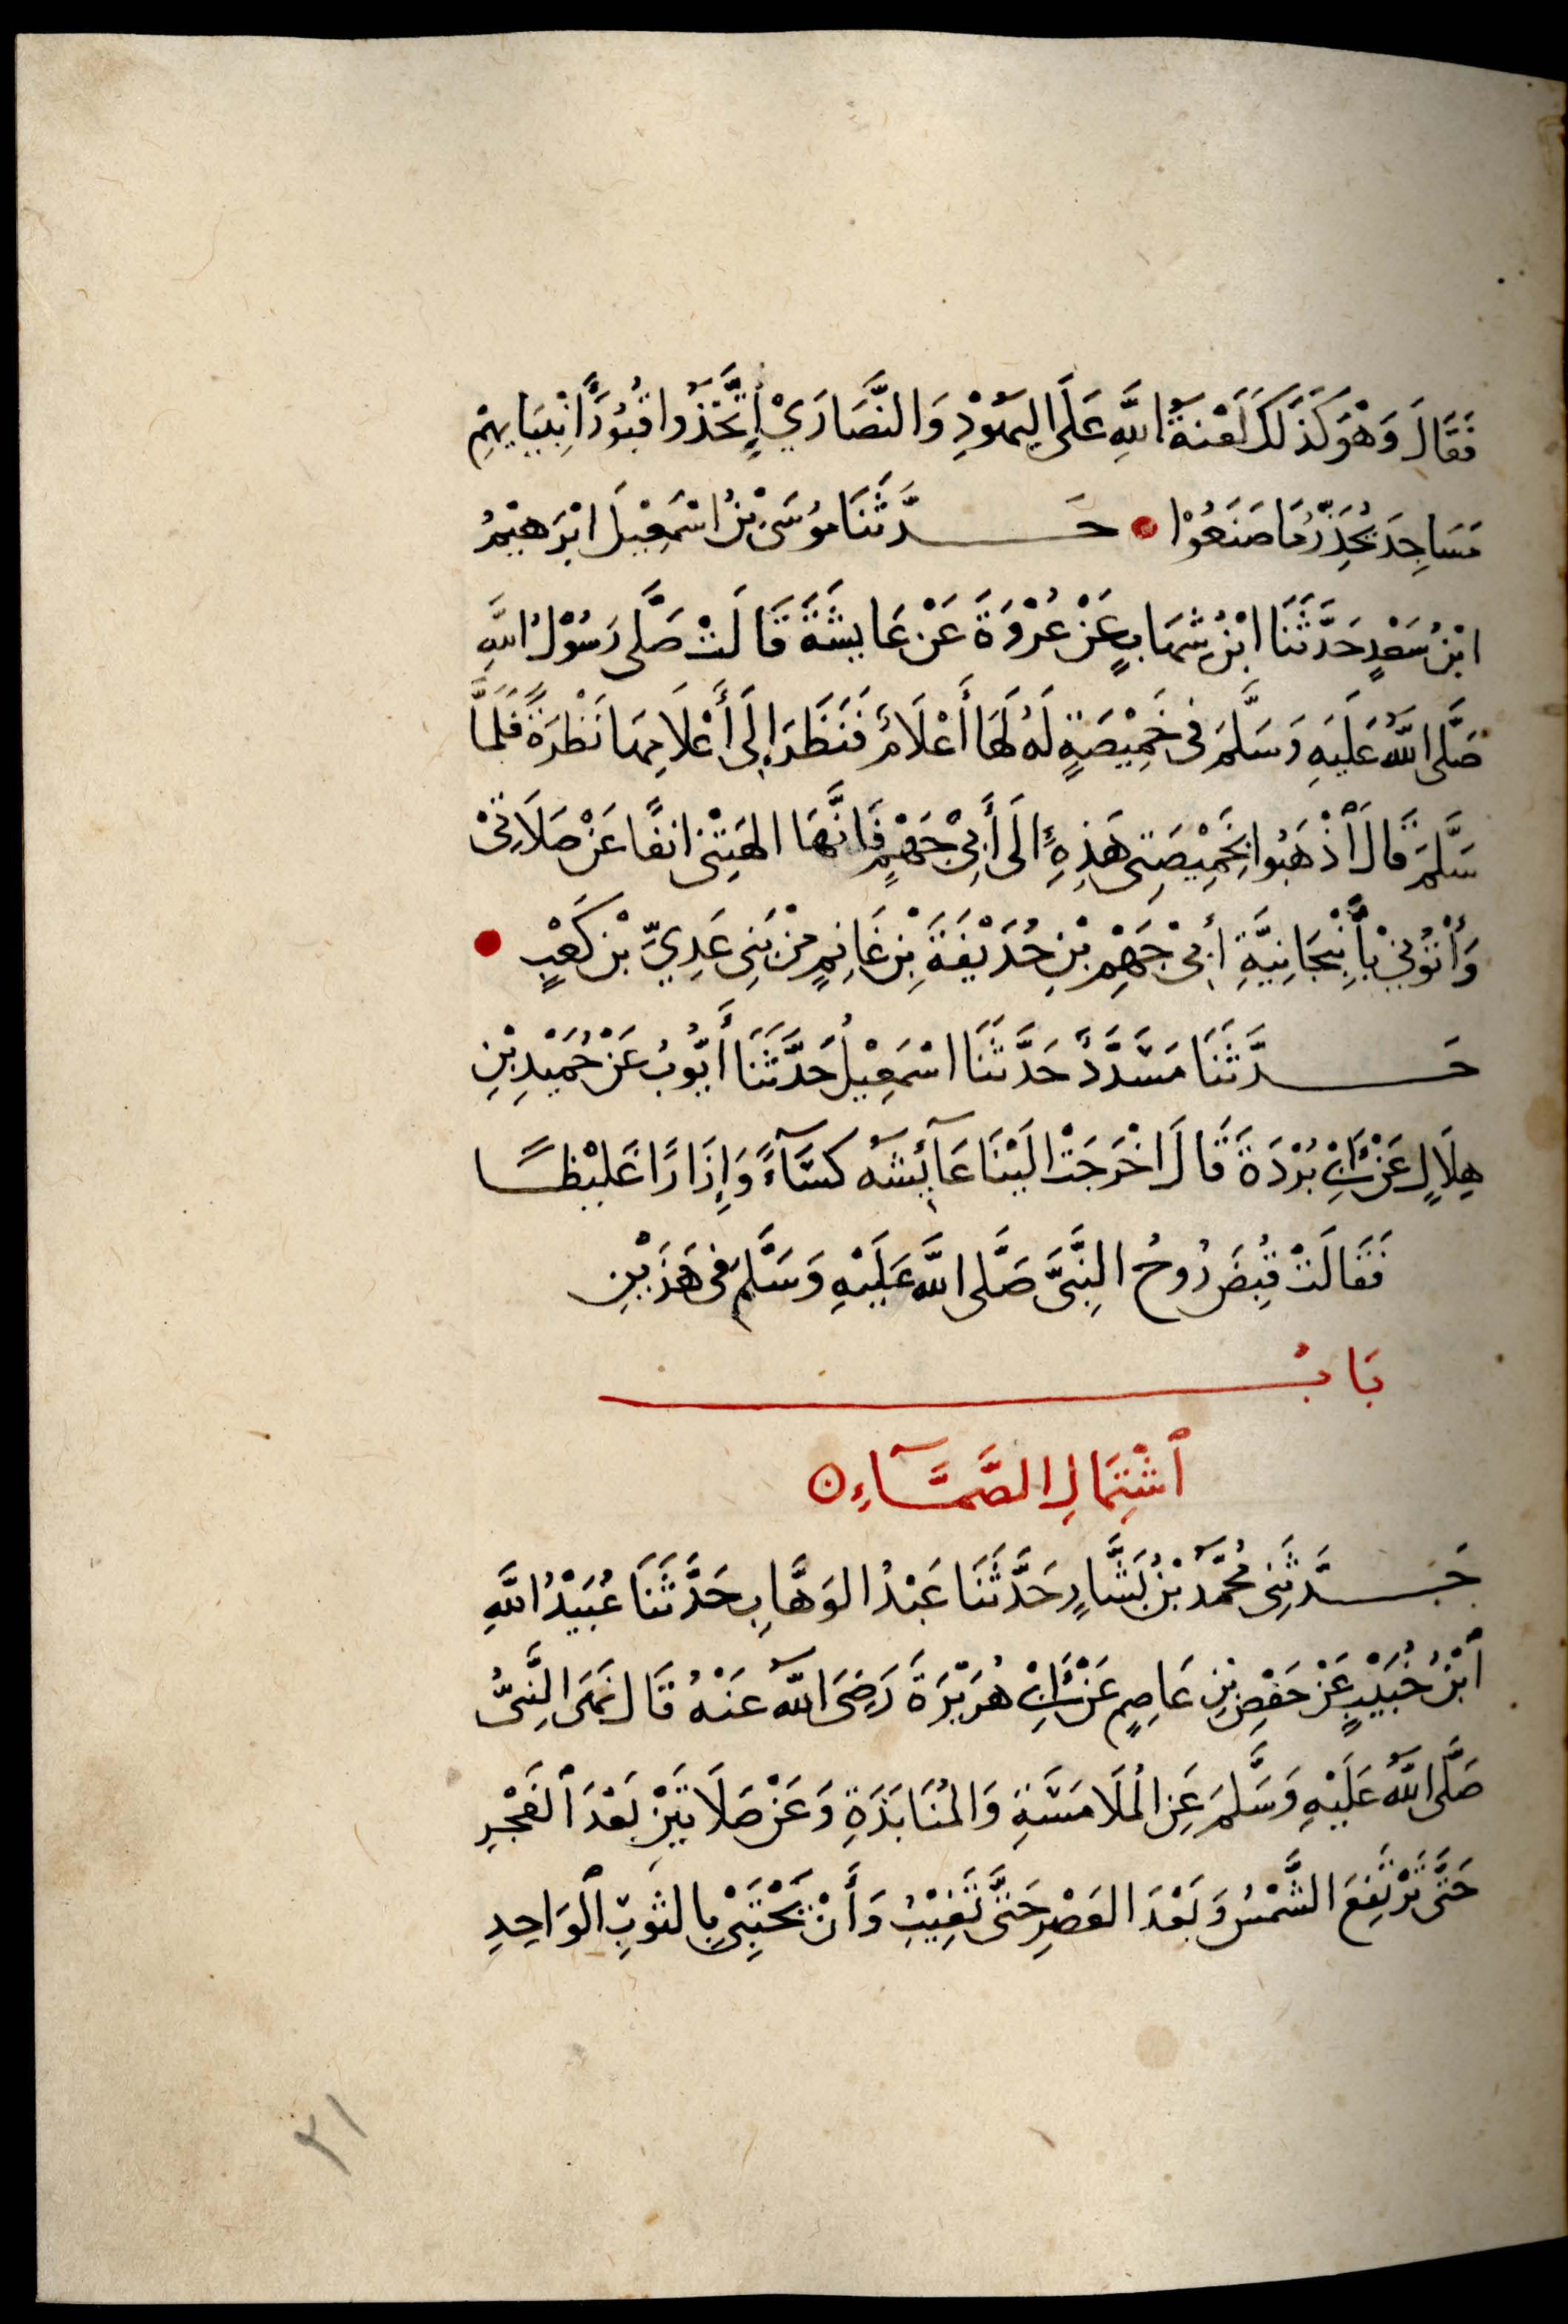 فَقَالَ وَهْوَ كَذَلِكَ لَعْنَةُ اللَّهِ عَلَى اليَهُوْدِ وَالنَّصَارَيْ اِتَّخَذُوا قُبُوْرَ أَنْبِيَايِهِمْ
مَسَاجِدَ يُحَذِّرُ مَا صَنَعُوْا ● حَدَّثَنَا مُوْسَى بْنُ اسْمَعِيْلَ ابْرَهِيْمُ
ابْنُ سَعْدٍ حَدَّثَنَا ابْنُ شِهَابٍ عَنْ عُرْوَةَ عَنْ عَايِشَةَ قَالَتْ صَلَّى رَسُوْلُ اللَّهِ
صَلَّى اللَّهُ عَلَيهِ وَسَلَّمَ فى خَمِيْصَةٍ لَهُ لَهَا أَعْلَامٌ فَنَظَرَ إِلَى أَعْلَامِهَا نَظْرَةً فَلَمَّا
سَلَّمَ قَالَ ٱذْهَبُوا بِخَمِيْصَتِى هَذِهِ إِلَى أَبِيْ جَهْمٍ فَانَّهَا الهَتْنِى انفًا عَنْ صَلَاتِىْ
وَأْتُوْنِيْ بِأَنْبِجَانِيَّةِ أَبِىْ جَهْمِ بْنِ حُذَيْفَةَ بْنِ غَانِمٍ مِنْ بَنِى عَدِيِّ بْنِ كَعْبٍ ●
حَدَّثَنَا مُسَدَّدٌ حَدَّثَنَا اسْمَعِيْلُ حَدَّثَنَا أَيُّوبُ عَنْ حُمَيْدِ بْنِ
هِلَالٍ عَنْ أَبِىْ بُرْدَةَ قَالَ اخْرَجَتْ الَيْنَا عَآئِشَه كِسَآءً وَإِزَارًا غَلِيْظًا
فَقَالَتْ قُبِضَ رُوحُ النَّبِىِّ صَلَّى اللَّه عَلَيْهِ وَسَلَّم فى هَذَيْنِ
بَابُ
ٱشْتِمَالِ الصَّمَّآءِ ں
حَدَّثَنِى مُحَمَّدُ بْنُ بَشَّارٍ حَدَّثَنَا عَبْدُ الوَهَّابِ حَدَّثَنَا عُبَيْدُ اللَّهِ
ٱبْنُ خُبَيْبٍ عَنْ حَفْصِ بْنِ عَاصِمٍ عَنْ أَبِىْ هُرَيْرَةَ رَضِىَ اللَّه عَنْهُ قَالَ نَهَى النَّبِىُّ
صَلَّى اللَّهُ عَلَيْهِ وَسَلَّمَ عَنِ المُلَامَسَةِ وَالمُنَابَذَةِ وَعَنْ صَلَاتَيْنِ بَعْدَ ٱلفَجْرِ
حَتَّى تَرْتَفِعَ الشَّمْسُ وَبَعْدَ العَصْرِ حَتَّى تَغِيْبَ وَأَنْ يَحْتَبِىْ بِالثَوبِ ٱلوَاحِدِ
٢١